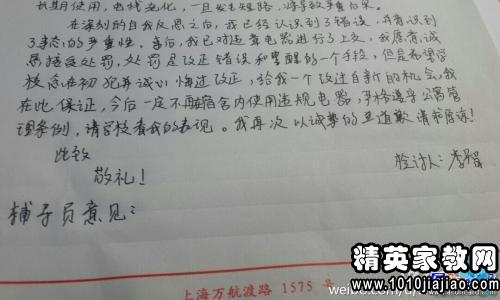 长期使用，电线老化，一旦发生短路，将导致严重后果。
在深刻的自我反思之后，我已经认识到了错误，并意识到
了事态的严重性。事后，我已对违章电器进行了上交，我愿意诚
恳接受处罚，处罚是改正错误和警醒的一个手段，但是希望学
校念在初犯并诚心悔过改正，给我一个改过自新的机会。我
在此保证，今后一定不再宿舍内使用违规电器，严格遵守公寓管
理条例，请学校看我的表现。我再次以诚挚的歉请求原谅！
此致
敬礼！
检讨人：李
辅导员意见：
上海万航渡路 1575 号
精英家教网
www.1010jiajiao.com